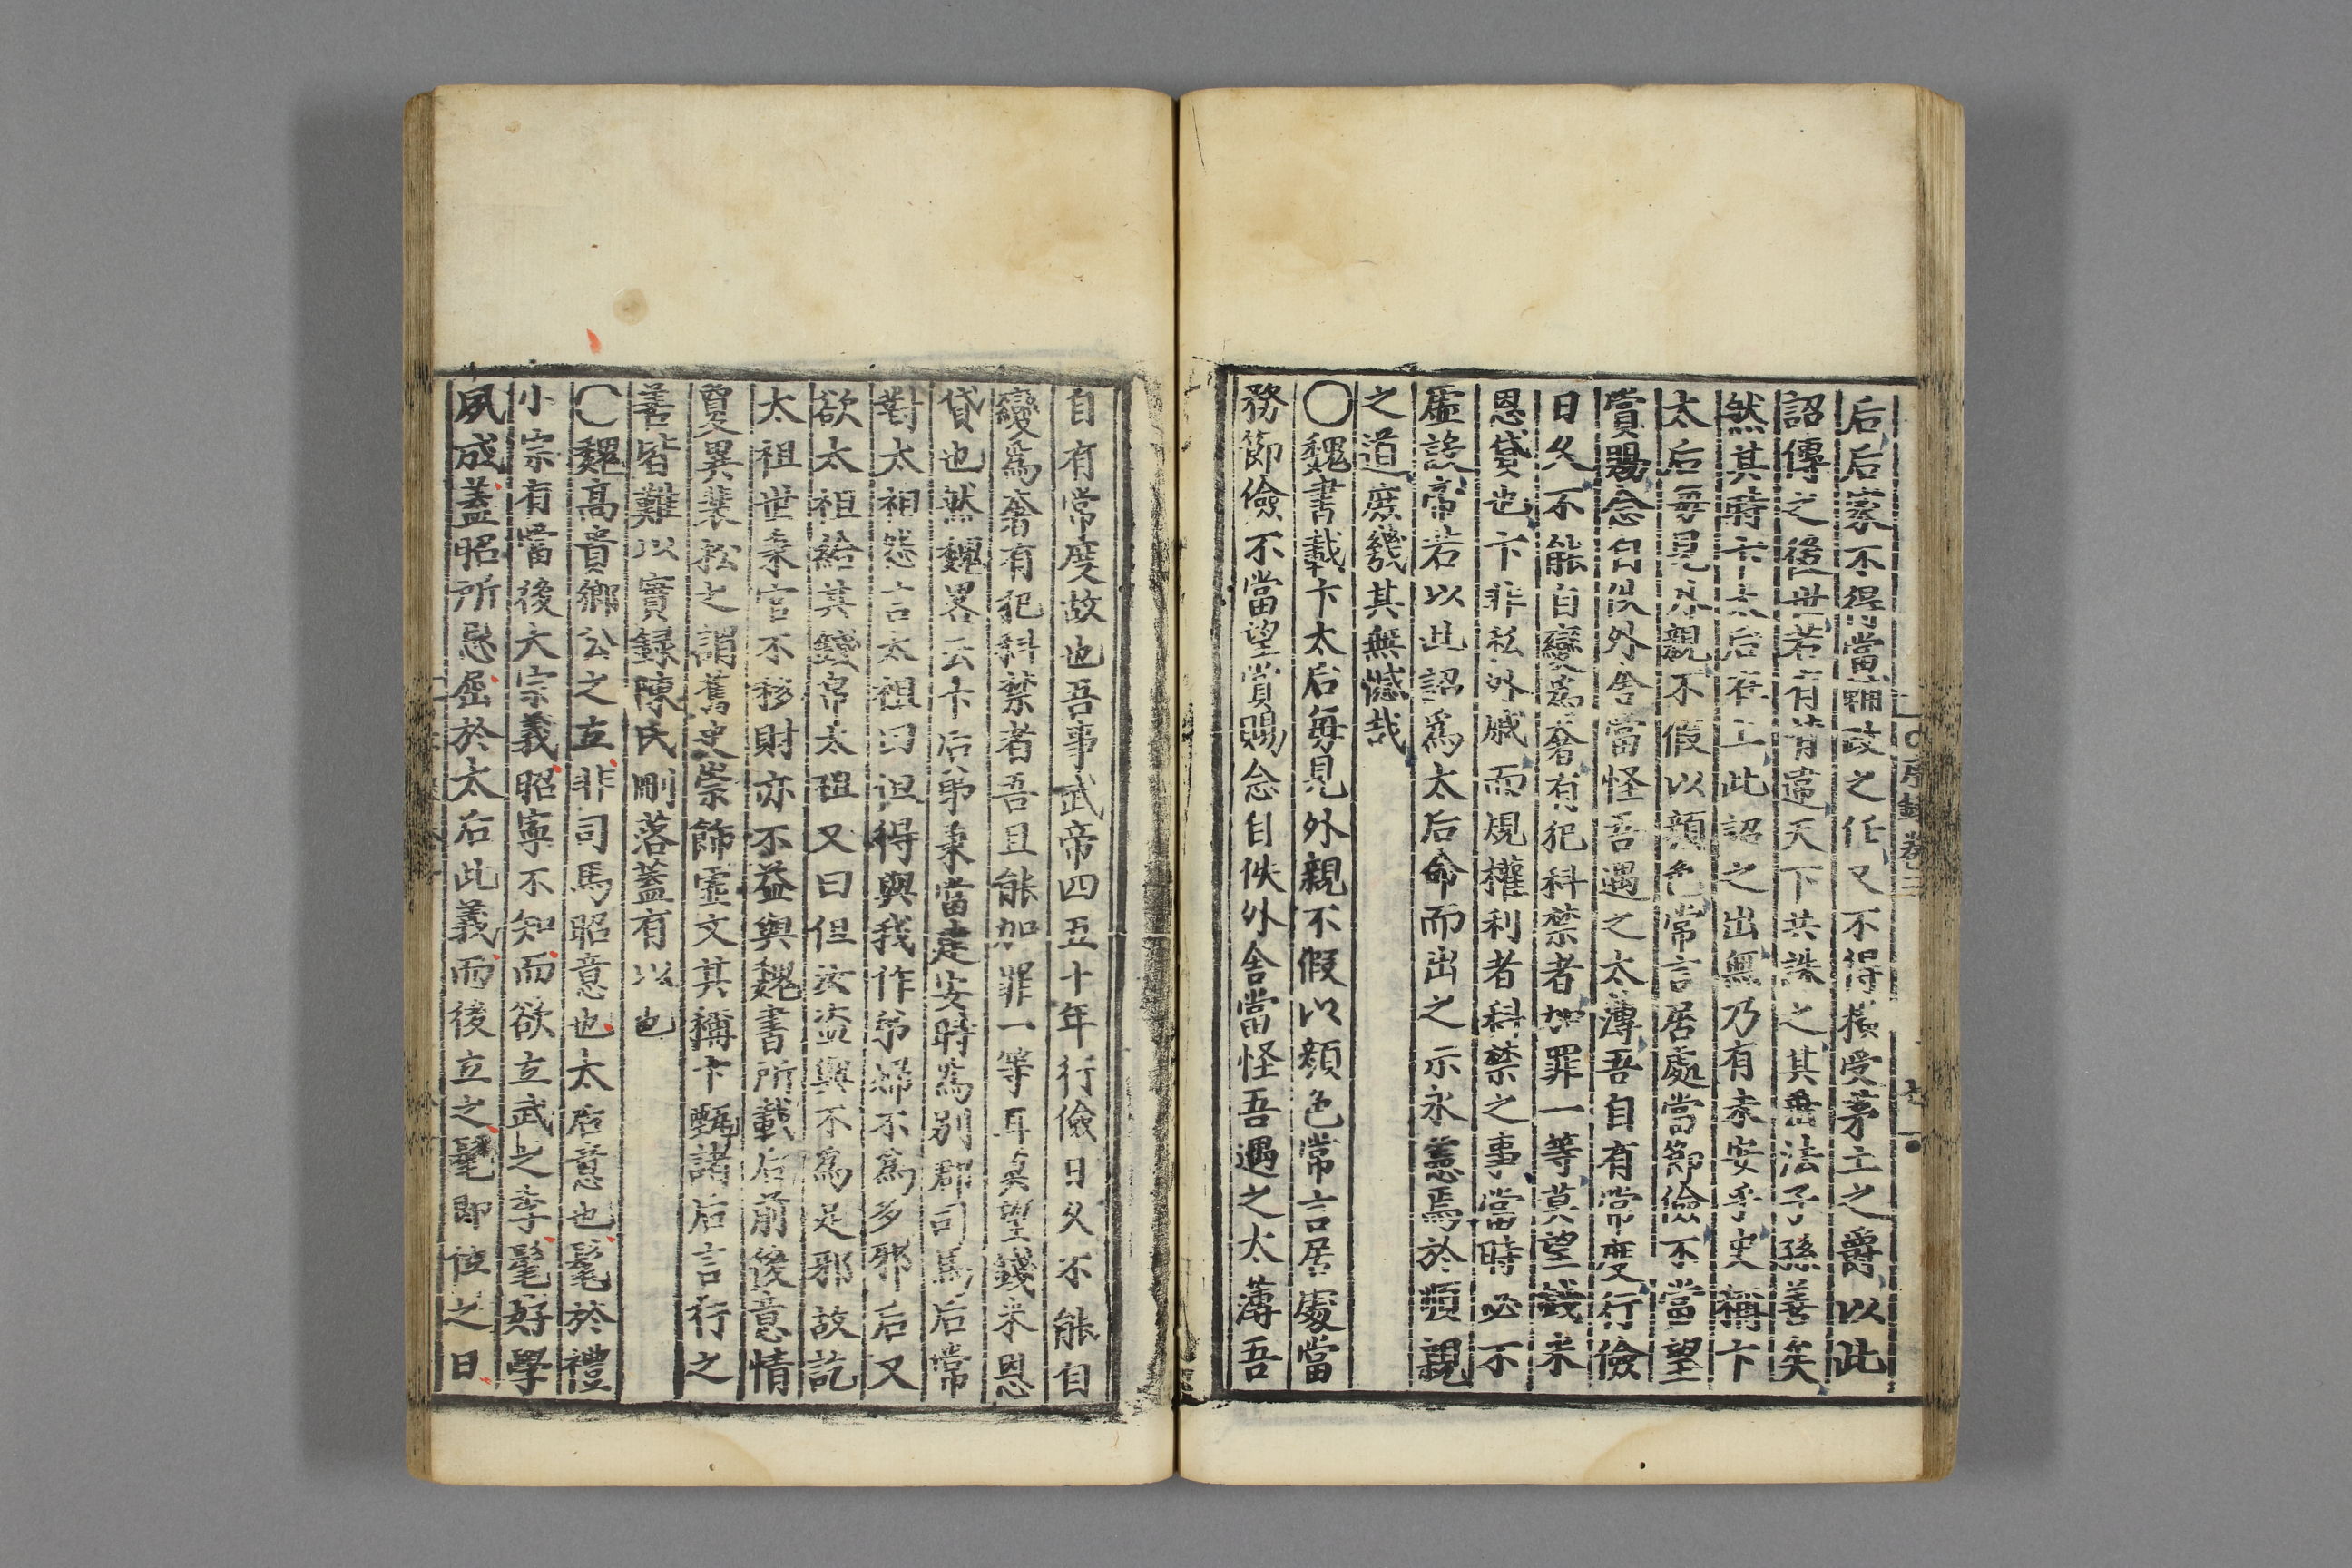 后后家不得當輔政之任又不得橫受茅土之爵以此
詔傳之後世若有背違天下共誅之其垂法子孫善矣
然其時卞太后在上此詔之出無乃有未安乎史稱卞
太后每見外親不假以顏色常言居處當節儉不當望
賞賜念自佚外舍當怪吾遇之太薄吾自有常度行儉
日久不能自變爲奢有犯科禁者加罪一等莫望錢米
恩貸也卞非私外戚而規權利者科禁之事當時必不
虛設帝若以此詔爲太后命而出之示永憲焉於顯親
之道庶幾其無憾哉
〇魏書載卞太后每見外親不假以顏色常言居處當
務節儉不當望賞賜念自佚外舍當怪吾遇之太薄吾
自有常度故也吾事武帝四五十年行儉日久不能自
變爲奢有犯科禁者吾且能加罪一等耳莫望錢米恩
貸也然魏畧云卞后弟秉當建安時爲别郡司馬后常
對太祖怨言太祖曰但得與我作弟婦不爲多邪后又
欲太祖給其錢帛太祖又曰但汝盜與不爲足邪故訖
太祖世秉官不移財亦不益與魏書所載后前後意情
敻異裴松之謂舊史崇飾虛文其稱卞甄諸后言行之
善皆難以實録陳氏刪落蓋有以也
〇魏高貴鄉公之立非司馬昭意也太后意也髦於禮
小宗有嘗後大宗義昭寧不知而欲立武之季髦好學
夙成蓋昭所忌屈於太后此義而後立之髦即位之日